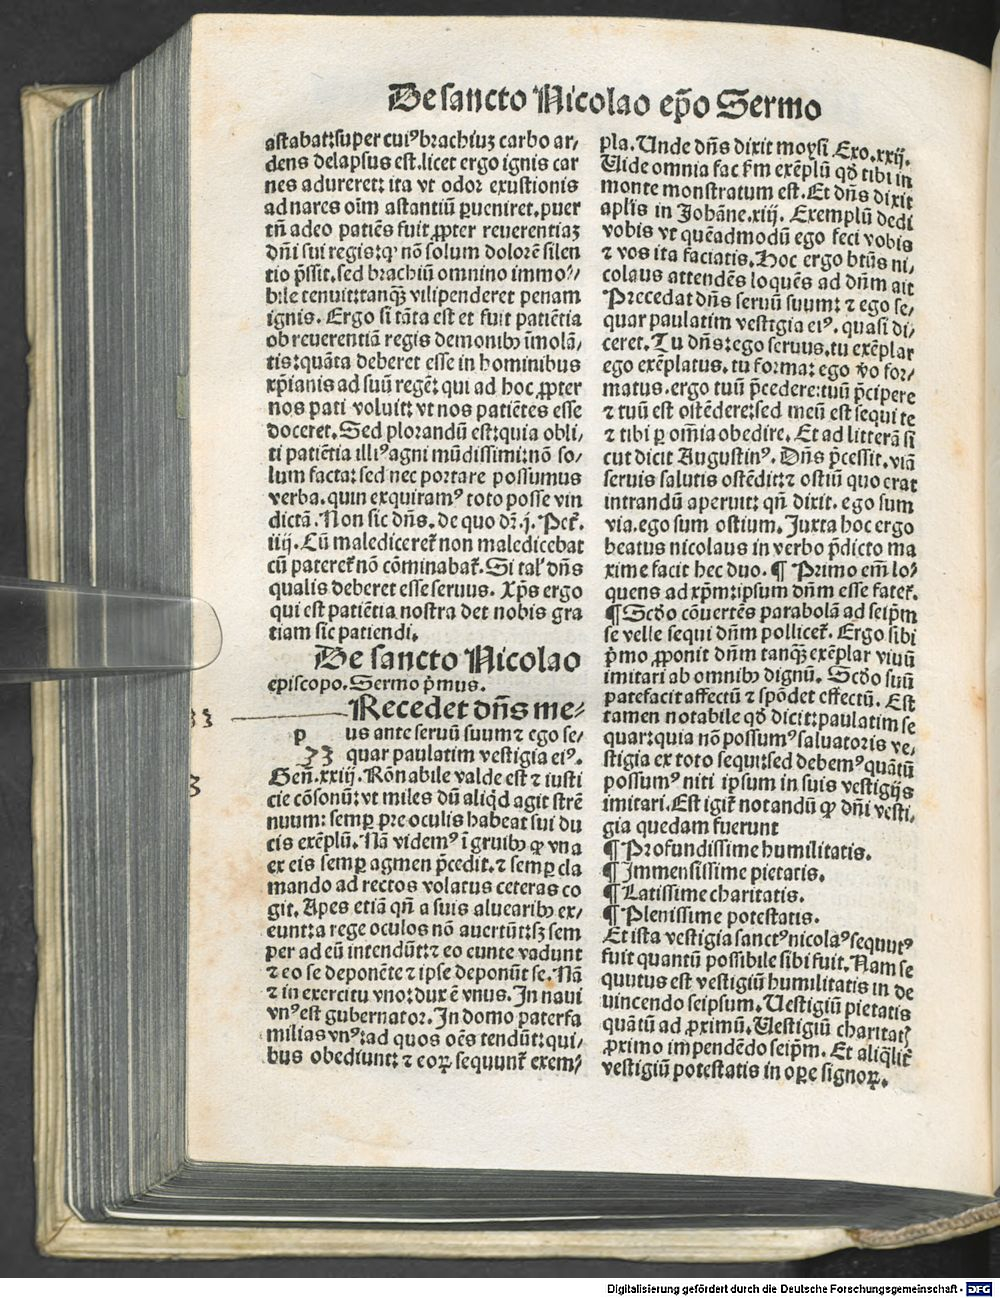 De sancto Nicolao ep̄o Sermo
astabat: super cuiꝰ brachiuꝫ carbo ar⸗
dens delapsus est. licet ergo ignis car
nes adureret: ita vt odor exustionis
ad nares oīm astantiū ꝑueniret. puer
tn̄ adeo patiēs fuit ꝓpter reuerentiaꝫ
dn̄i sui regis: ꝙ nō solum dolorē silen
tio p̄ssit. sed brachiū omnino immo⸗
bile tenuit: tanqꝫ vilipenderet penam
ignis. Ergo si tāta est et fuit patiētia
ob reuerentiā regis demonibꝰ īmolā⸗
tis: quāta deberet esse in hominibus
xp̄ianis ad suū regē: qui ad hoc ꝓpter
nos pati voluit: vt nos patiētes esse
doceret. Sed plorandū est: quia obli⸗
ti patiētia illiꝰ agni mūdissimi: nō so⸗
lum facta: sed nec portare possumus
verba. quin exquiramꝰ toto posse vin
dictā. Non sic dn̄s. de quo dꝛ̄. j. Pet̄.
iiij. Cū malediceret̄ non maledicebat
cū pateret̄ nō cōminabat̄. Si tal̄ dn̄s
qualis deberet esse seruus. Xp̄s ergo
qui est patiētia nostra det nobis gra
tiam sic patiendi.
De sancto Nicolao
episcopo. Sermo p̄mus.
33 Recedet dn̄s me⸗
p us ante seruū suum ⁊ ego se⸗
33 quar paulatim vestigia eiꝰ.
3
Gen̄. xxiij. Rōnabile valde est ⁊ iusti
cie cōsonū: vt miles dū aliqd̄ agit strē
nuum: semꝑ pre oculis habeat sui du
cis exēplū. Nā videmꝰ ī gruibꝰ ꝙ vna
ex eis semꝑ agmen p̄cedit. ⁊ semꝑ cla
mando ad rectos volatus ceteras co
git. Apes etiā qn̄ a suis aluearibꝰ ex⸗
eunt: a rege oculos nō auertūt: sꝫ sem
per ad eū intendūt: ⁊ eo eunte vadunt
⁊ eo se deponēte ⁊ ipse deponūt se. Nā
⁊ in exercitu vno: dux ē vnus. In naui
vnꝰ est gubernator. In domo paterfa
milias vnꝰ: ad quos oēs tendūt: qui⸗
bus obediunt: ⁊ eoꝝ sequunt̄ exem⸗
pla. Unde dn̄s dixit moysi Exo. xxij.
Uide omnia fac ẜm exēplū qd̄ tibi in
monte monstratum est. Et dn̄s dixit
apl̄is in Johāne. xiij. Exemplū dedi
vobis vt quēadmodū ego feci vobis
⁊ vos ita faciatis. Hoc ergo btūs ni⸗
colaus attendēs loquēs ad dn̄m ait
Precedat dn̄s seruū suum: ⁊ ego se⸗
quar paulatim vestigia eiꝰ. quasi di⸗
ceret. Tu dn̄s: ego seruus. tu exēplar
ego exēplatus. tu forma: ego v̄o for⸗
matus. ergo tuū p̄cedere: tuū p̄cipere
⁊ tuū est ostēdere: sed meū est sequi te
⁊ tibi ꝑ om̄ia obedire. Et ad litterā si
cut dicit Augustinꝰ. Dn̄s p̄cessit. viā
seruis salutis ostēdit: ⁊ ostiū quo erat
intrandū aperuit: qn̄ dixit. ego sum
via. ego sum ostium. Juxta hoc ergo
beatus nicolaus in verbo p̄dicto ma
xime facit hec duo. ¶ Primo em̄ lo⸗
quens ad xp̄m: ipsum dn̄m esse fatet̄.
¶ Scd̄o cōuertēs parabolā ad seip̄m
se velle sequi dn̄m pollicet̄. Ergo sibi
p̄mo ꝓponit dn̄m tanqꝫ exēplar viuū
imitari ab omnibꝰ dignū. Scd̄o suū
patefacit affectū ⁊ spōdet effectū. Est
tamen notabile qd̄ dicit: paulatim se
quar: quia nō possumꝰ saluatoris ve⸗
stigia ex toto sequi: sed debemꝰ quātū
possumꝰ niti ipsum in suis vestigijs
imitari. Est igit̄ notandū ꝙ dn̄i vesti⸗
gia quedam fuerunt
¶ Profundissime humilitatis.
¶ Immensissime pietatis.
¶ Latissime charitatis.
¶ Plenissime potestatis.
Et ista vestigia sanctꝰ nicolaꝰ sequutꝰ
fuit quantū possibile sibi fuit. Nam se
quutus est vestigiū humilitatis in de
uincendo seipsum. Uestigiū pietatis
quātū ad ꝓximū. Uestigiū charitatꝭ
ꝓximo impendēdo seip̄m. Et aliql̄it̄
vestigiū potestatis in oꝑe signoꝝ.
Digitalisierung gefördert durch die Deutsche Forschungsgemeinschaft - DFG